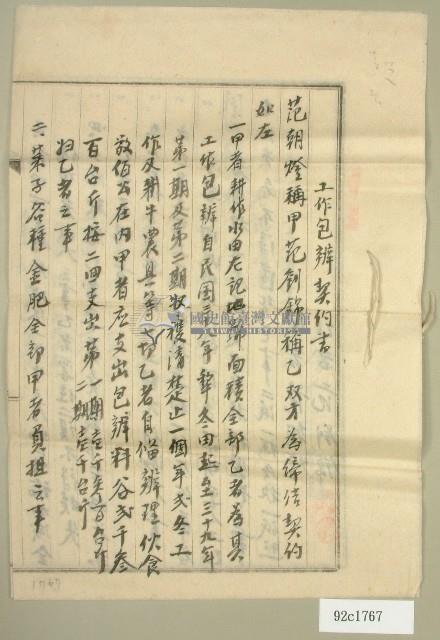 工作包辦契約書
范朝燈稱甲范釗錦稱乙双方為締结契約
如左
一甲者耕作水田左記地號面積全部乙者為其
工作包辦自民国年犂冬田起至三十九年
第一期及第二期収穫清楚止一個年弍冬工
作及耕牛農具等一切乙者自備辦理伙食
敬伯公在内甲者应支出包辦料谷弍千参
百台斤按二回支出第一期壹千参百台斤
二期壹千台斤
归乙者之事
六菓子谷種金肥全部甲者負担之事
國史館臺灣文獻館
TAIWAN HISTORICA
1767
92c1767